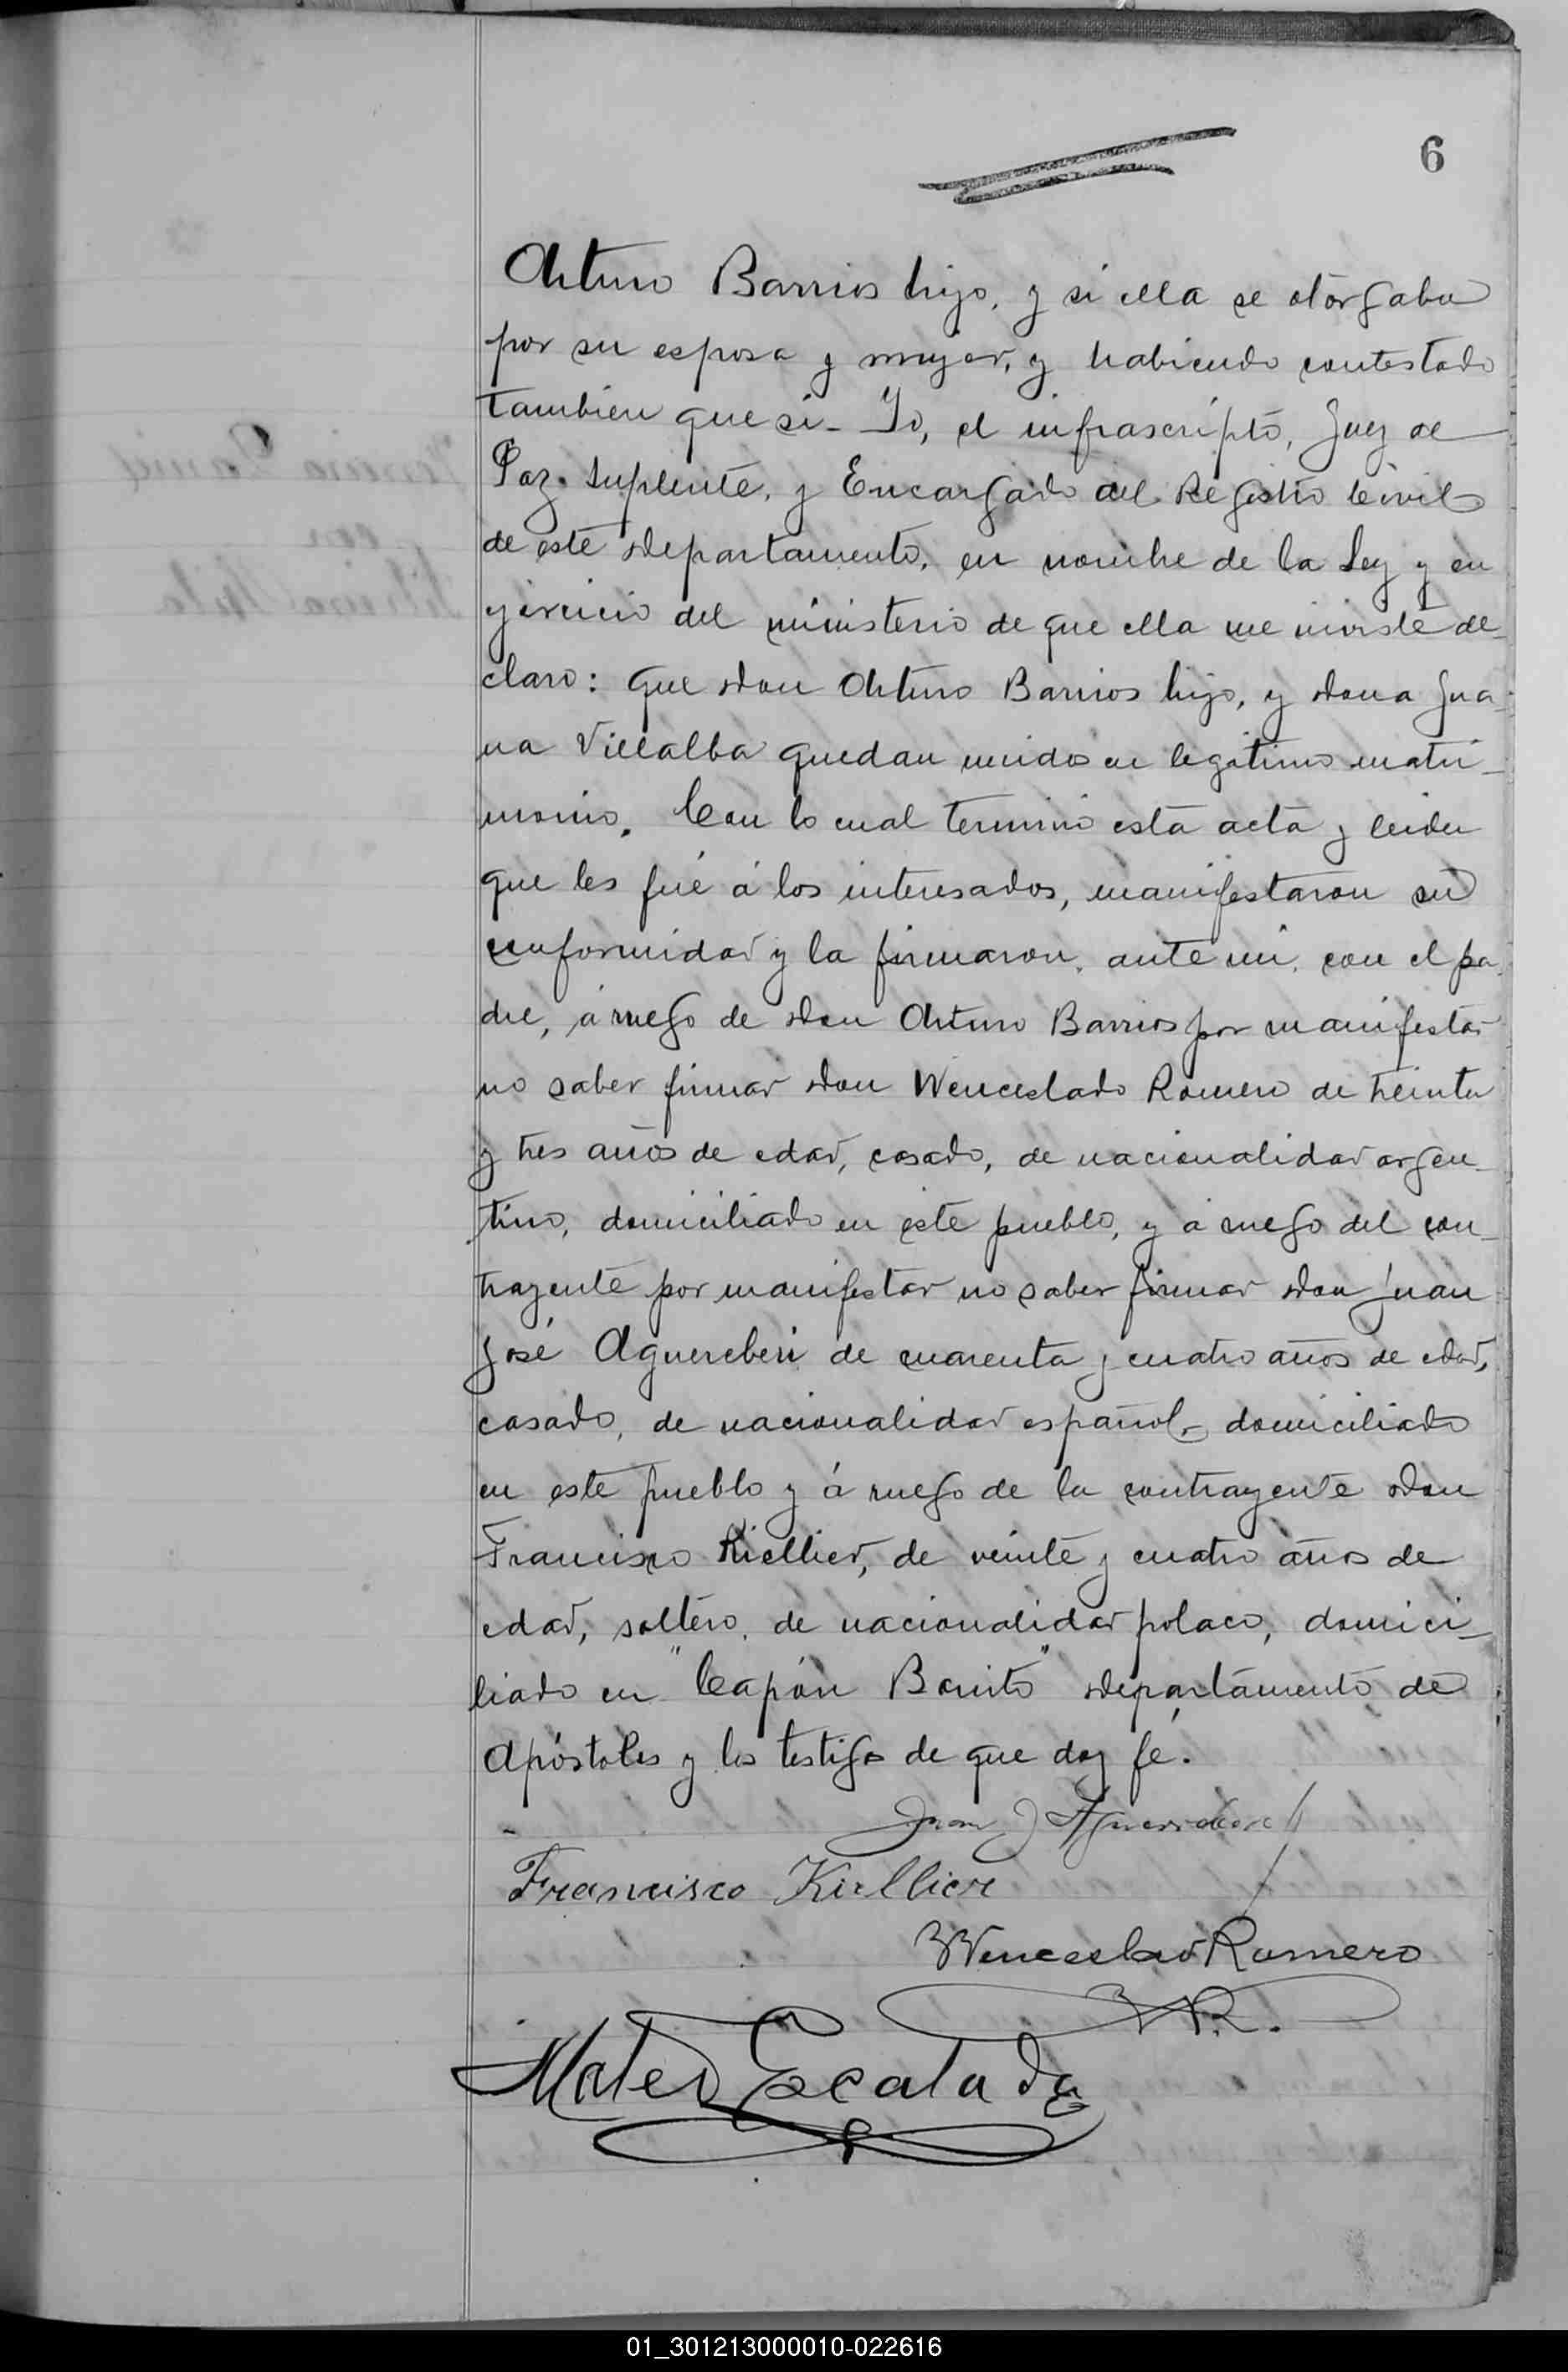 6
Arturo Barrios hijo, y si ella se otorgaba
por su esposa y mujer, y habiendo contestado
tambien que si- Yo, el infrascripto, Juez de
Paz Suplente, y Encargado del Registro Civil
de este Departamento, en nombre de la Ley y en
ejercicio del ministerio de que ella me inviste de-
claro: que Don Arturo Barrios hijo, y Dona Jua-
na Villalba quedan unidos en legitimo matri-
monio. Con lo cual terminó esta acta y leida
que les fué á los interesados, manifestaron su
conformidad y la firmaron, ante mi, con el pa-
dre, á ruego de Don Arturo Barrios por manifestar
no saber firmar Don Wenceslado Romero de treinta
y tres años de edad, casado, de nacionalidad argen-
tino, domiciliado en este pueblo, y á ruego del con-
trayente por manifestar no saber firmar Don Juan
José Aguereberi de cuarenta y cuatro años de edad,
casado, de nacionalidad español, domiciliado
en este pueblo y á ruego de la contrayente Don
Francisco Kiellier, de veinte y cuatro años de
edad, soltero, de nacionalidad polaco, domici-
liado en "Capón Bonito" Departamento de
Apóstoles y los testigos de que doy fé.
Juan J
Francisco Kiellier
Wenceslao Romero
W.R.
Mateo Escalada
01_301213000010-022616